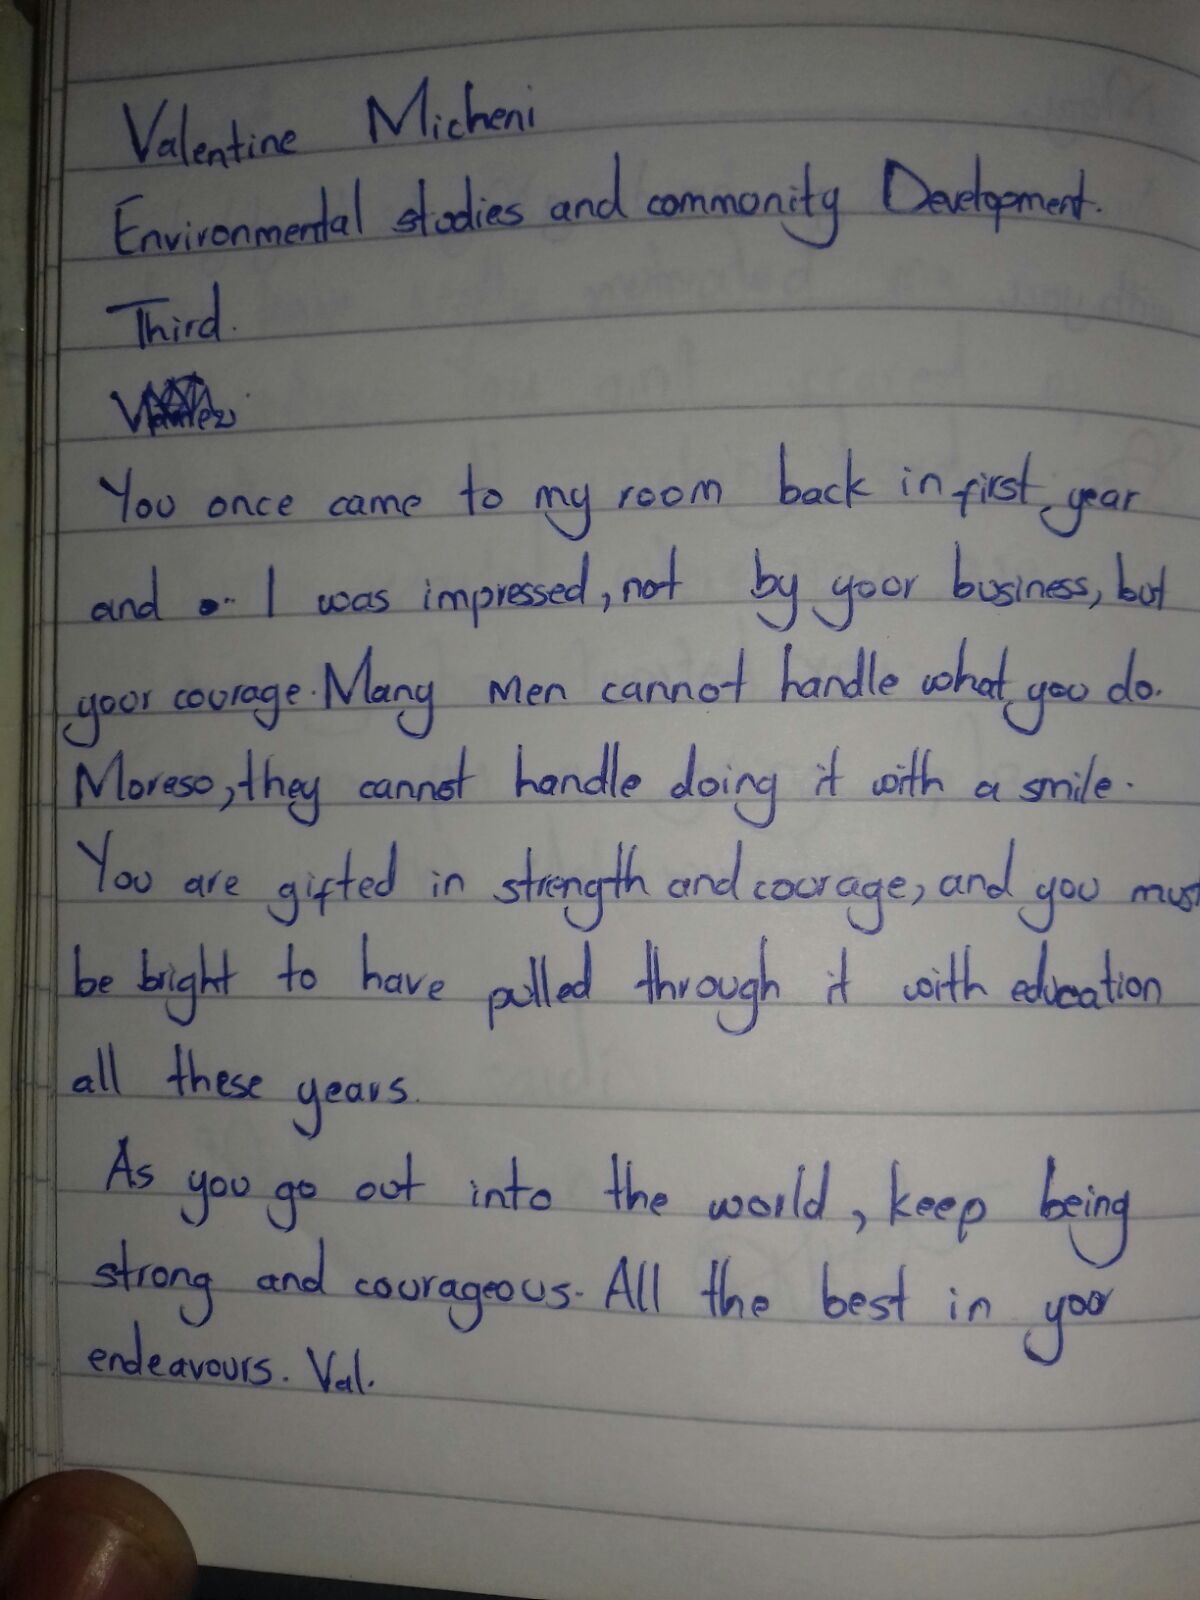 Valentine Micheni
Environmental studies and community Development.
Third.
You once came to my room back in first year
and I was impressed, not by your business, but
your courage. Many men cannot handle what you do.
Moreso, they cannot handle doing it with a smile.
You are gifted in strength and courage, and you must
be bright to have pulled through it with education
all these years.
As you go out into the world, keep being
strong and courageous. All the best in your
endeavours. Val.